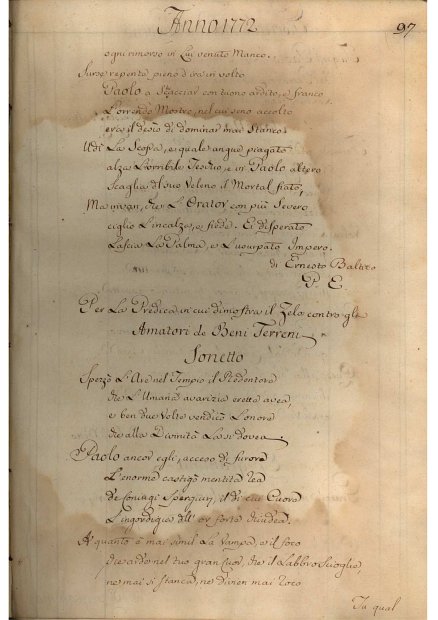 Anno 1772
97
ogni rimorso in Lui venuto Manco.
Surse repente pieno d'ira in volto
Paolo a Scacciar con tuono ardito, e franco
L'orrendo Mostro, nel cui seno accolto
era il desio di dominar mai Stanco.
Udì La Scossa, e qual angue piagato
alza L'orribile Teschio, e in Paolo altero
Scaglia del suo Veleno il Mortal fiato,
Ma invan, che L'Orator con più Severo
ciglio L'incalza, e fiede. Ei disperato
Lascia La Palma, e L'usurpato Impero.
di Ernesto
P. E.
Per La Predica in cui dimostra il Zelo contro gli
Amatori de Beni Terreni
Sonetto
Spezzò L'Are nel Tempio il Redentore
che L'Umana avarizia eretta avea,
e ben due Volte vendicò L'onore
che alla Divinità La si dovea.
Paolo ancor egli, acceso di furore
L'enorme castigò mentita rea
de Coniugi Spergiuri, il di cui Cuore
L'ingordigia dell'or forte chiudea.
A quanto è mai simil La Vampa, e il foco
che arde nel tuo gran Cuor, che il Labbro Scioglie,
ne mai si stanca, ne divien mai roco
Tu qual